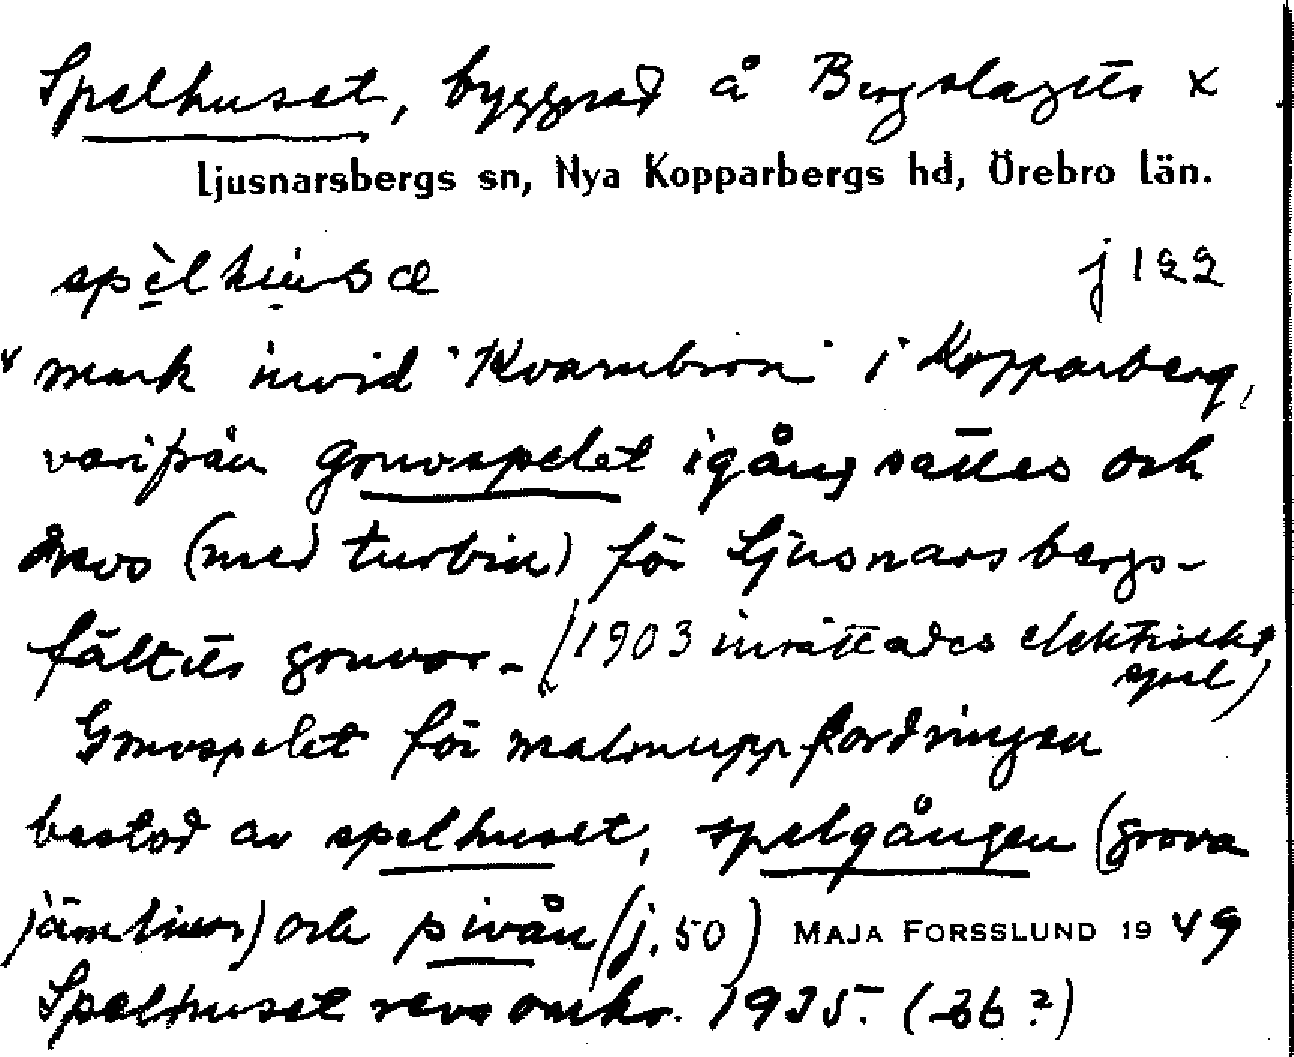 Spelhuset, byggnad å Bergslagets x
Ljusnarsbergs sn, Nya Kopparbergs hd, Örebro län.
spèlhusæ j 122
x mark invid "Kvarnbron" i Kopparberg,
varifrån gruvspelet igångsattes och
drevs (med turbin) för Ljusnarsbergs-
fältets gruvor. - (1903 inrättades elektriskt
spel)
Gruvspelet för malmuppfordringen
bestod av spelhuset, spelgången (grova
järnlinor) och pivån (j. 50) MAJA FORSSLUND 19 49
Spelhuset revs omkr. 1935. (36?)